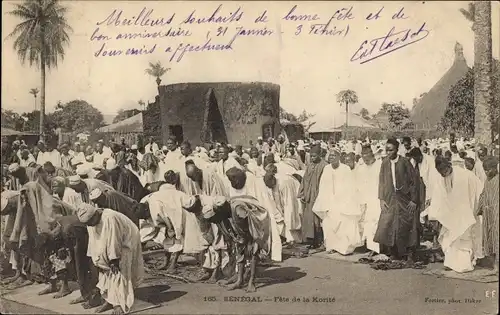 Meilleurs souhaits de bonne fête et de
bon anniversaire (31 Janvier - 3 Février)
souvenirs affectueux
165. SÉNÉGAL — Fête de la Korité
Fortier, photo. Dakar